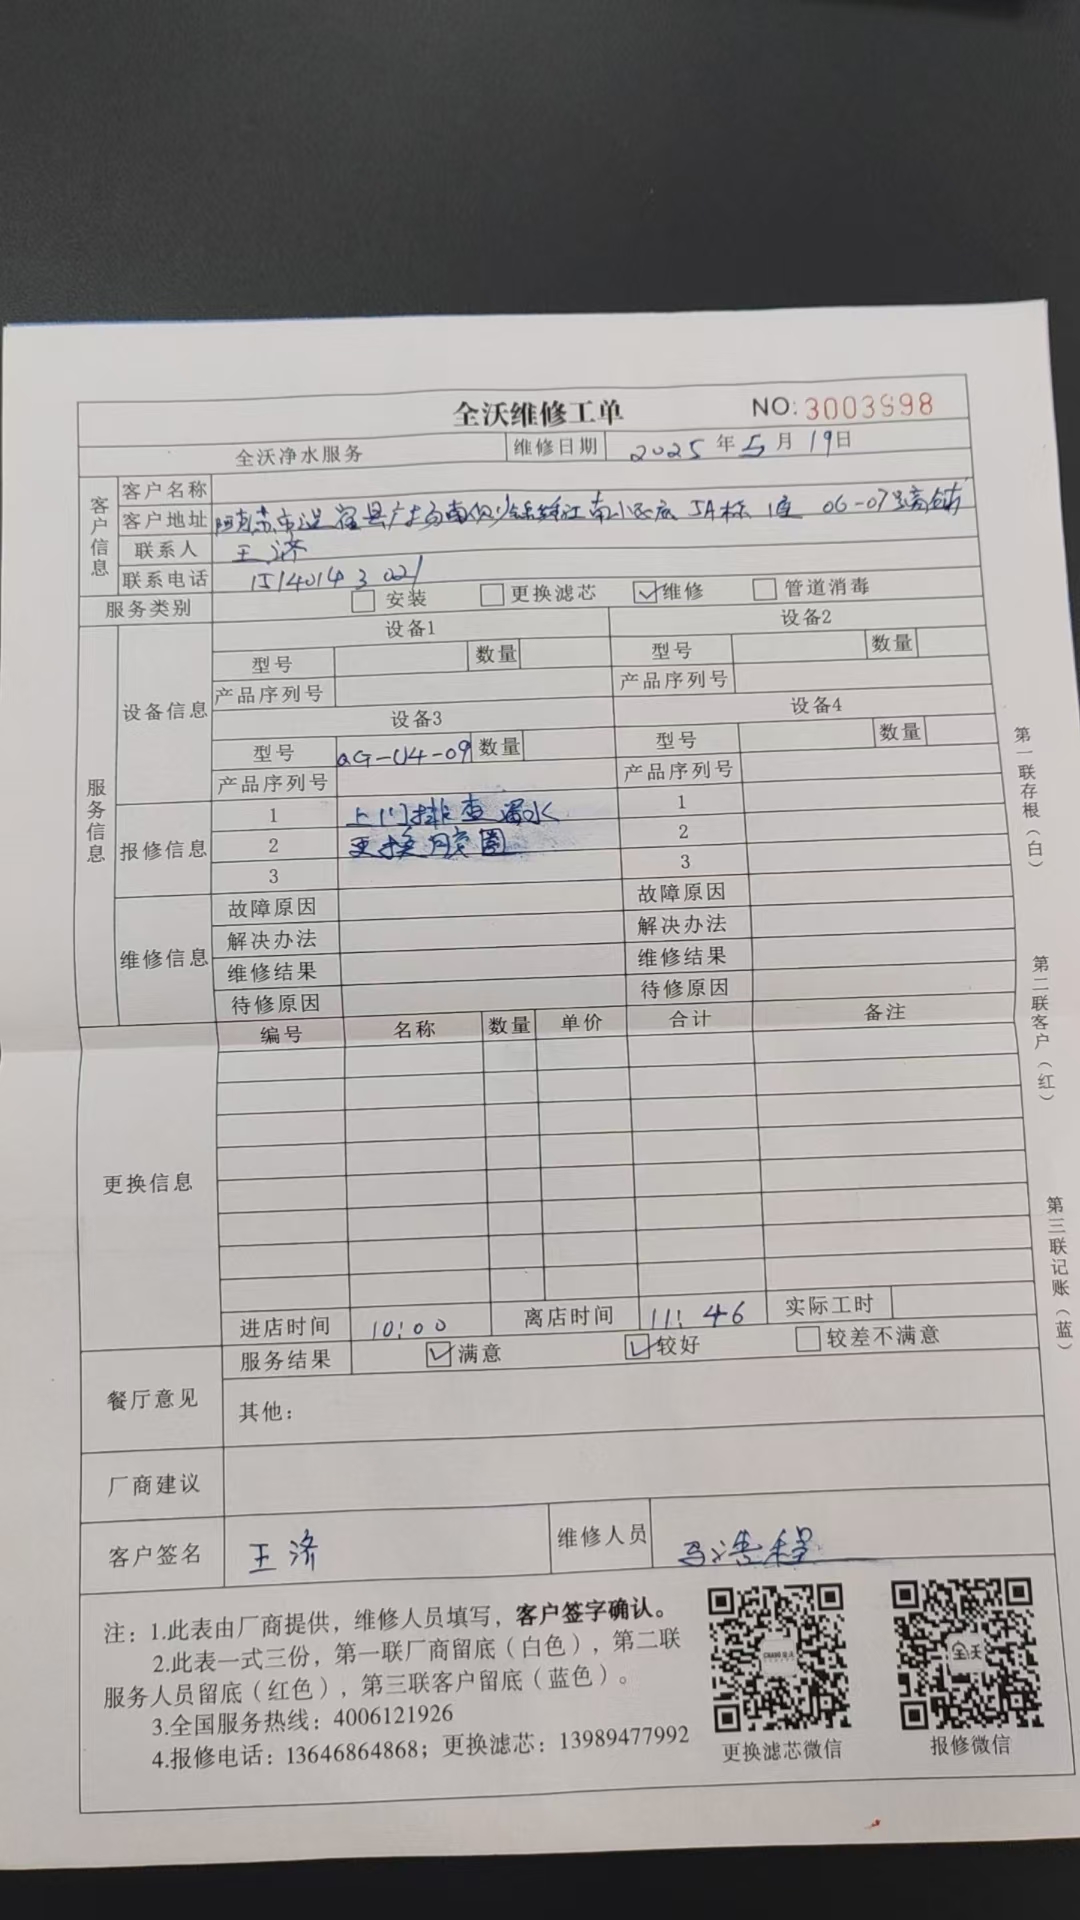 全沃维修工单 NO: 3003998
全沃净水服务 维修日期 2025年5月19日
客户信息
客户名称
客户地址 阿克苏市温宿县广场南侧 江南小区底 5A栋 1座 06-07号商铺
联系人 王济
联系电话 15140143021
服务类别 安装 更换滤芯 ✓维修 管道消毒
服务信息
设备信息
设备1 设备2
型号 数量 型号 数量
产品序列号 产品序列号
设备3 设备4
型号 QG-U4-09 数量 型号 数量
产品序列号 产品序列号
报修信息
1 上门排查漏水 1
2 更换胶圈 2
3 3
维修信息
故障原因 故障原因
解决办法 解决办法
维修结果 维修结果
待修原因 待修原因
更换信息
编号 名称 数量 单价 合计 备注
进店时间 10:00 离店时间 11:46 实际工时
餐厅意见
服务结果 ✓满意 ✓较好 较差不满意
其他：
厂商建议
客户签名 王济 维修人员 马浩程
注：1.此表由厂商提供，维修人员填写，客户签字确认。
2.此表一式三份，第一联厂商留底（白色），第二联
服务人员留底（红色），第三联客户留底（蓝色）。
3.全国服务热线：4006121926
4.报修电话：13646864868；更换滤芯：13989477992
更换滤芯微信 报修微信
全沃
第一联存根（白）
第二联客户（红）
第三联记账（蓝）